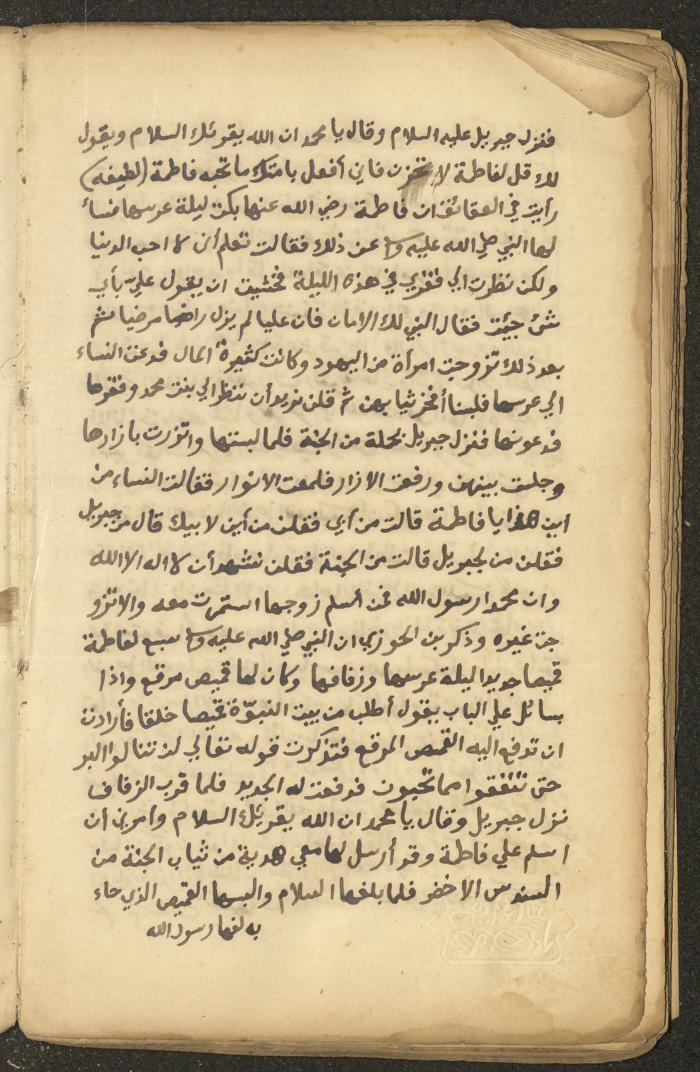 فنزل جبريل عليه السلام وقال يا محمد ان الله يقرئك السلام ويقول
لك قل لفاطمة لا تحزن فاني أفعل بامتك ما تحبه فاطمة (لطيفه)
رأيت في العقائق ان فاطمة رضي الله عنها بكت ليلة عرسها فسأ
لها النبي صلي الله عليه وسلم عن ذلك فقالت تعلم أن لا احب الدنيا
ولكن نظرت الي فقري في هذه الليلة فخشيت ان يقول علي بأي
شئ جيئت فقال النبي لك الامان فان عليا لم يزل راضيا مرضيا ثم
بعد ذلك تزوجت امرأة من اليهود وكانت كثيرة المال فدعت النساء
الي عرسها فلبسنا أفخر ثيابهن ثم قلن نريد أن ننظر الي بنت محمد وفقرها
فدعونها فنزل جبريل بحلة من الجنة فلما لبستها واتزرت بازارها
وجلست بينهن ورفعت الازار فلمعت الانوار فقالت النساء من
أين هذا يا فاطمة قالت من أبي فقلن من أين لابيك قال من جبريل
فقلن من لجبريل قالت من الجنة فقلن نشهد أن لا اله الا الله
وان محمدا رسول الله فمن أسلم زوجها استمرت معه والا تزو
جت غيره وذكر بن الجوزي ان النبي صلي الله عليه وسلم سبع لفاطمة
قميصا جديدا ليلة عرسها وزفافها وكان لها قميص مرقع واذا
بسائل علي الباب يقول أطلب من بيت النبوّة قميصا خلقا فأرادت
ان تدفع اليه القميص المرقع فتذكرت قوله تعالي لن تنالوا البر
حتي تنفقوا مما تحبون فدفعت له الجديد فلما قرب الزفاف
نزل جبريل وقال يا محمد ان الله يقرئك السلام وامرني أن
اسلم علي فاطمة وقد أرسل لها معي هدية من ثياب الجنة من
السندس الاخضر فلما بلغها السلام والبسها القميص الذي جاء
به لفها رسول الله